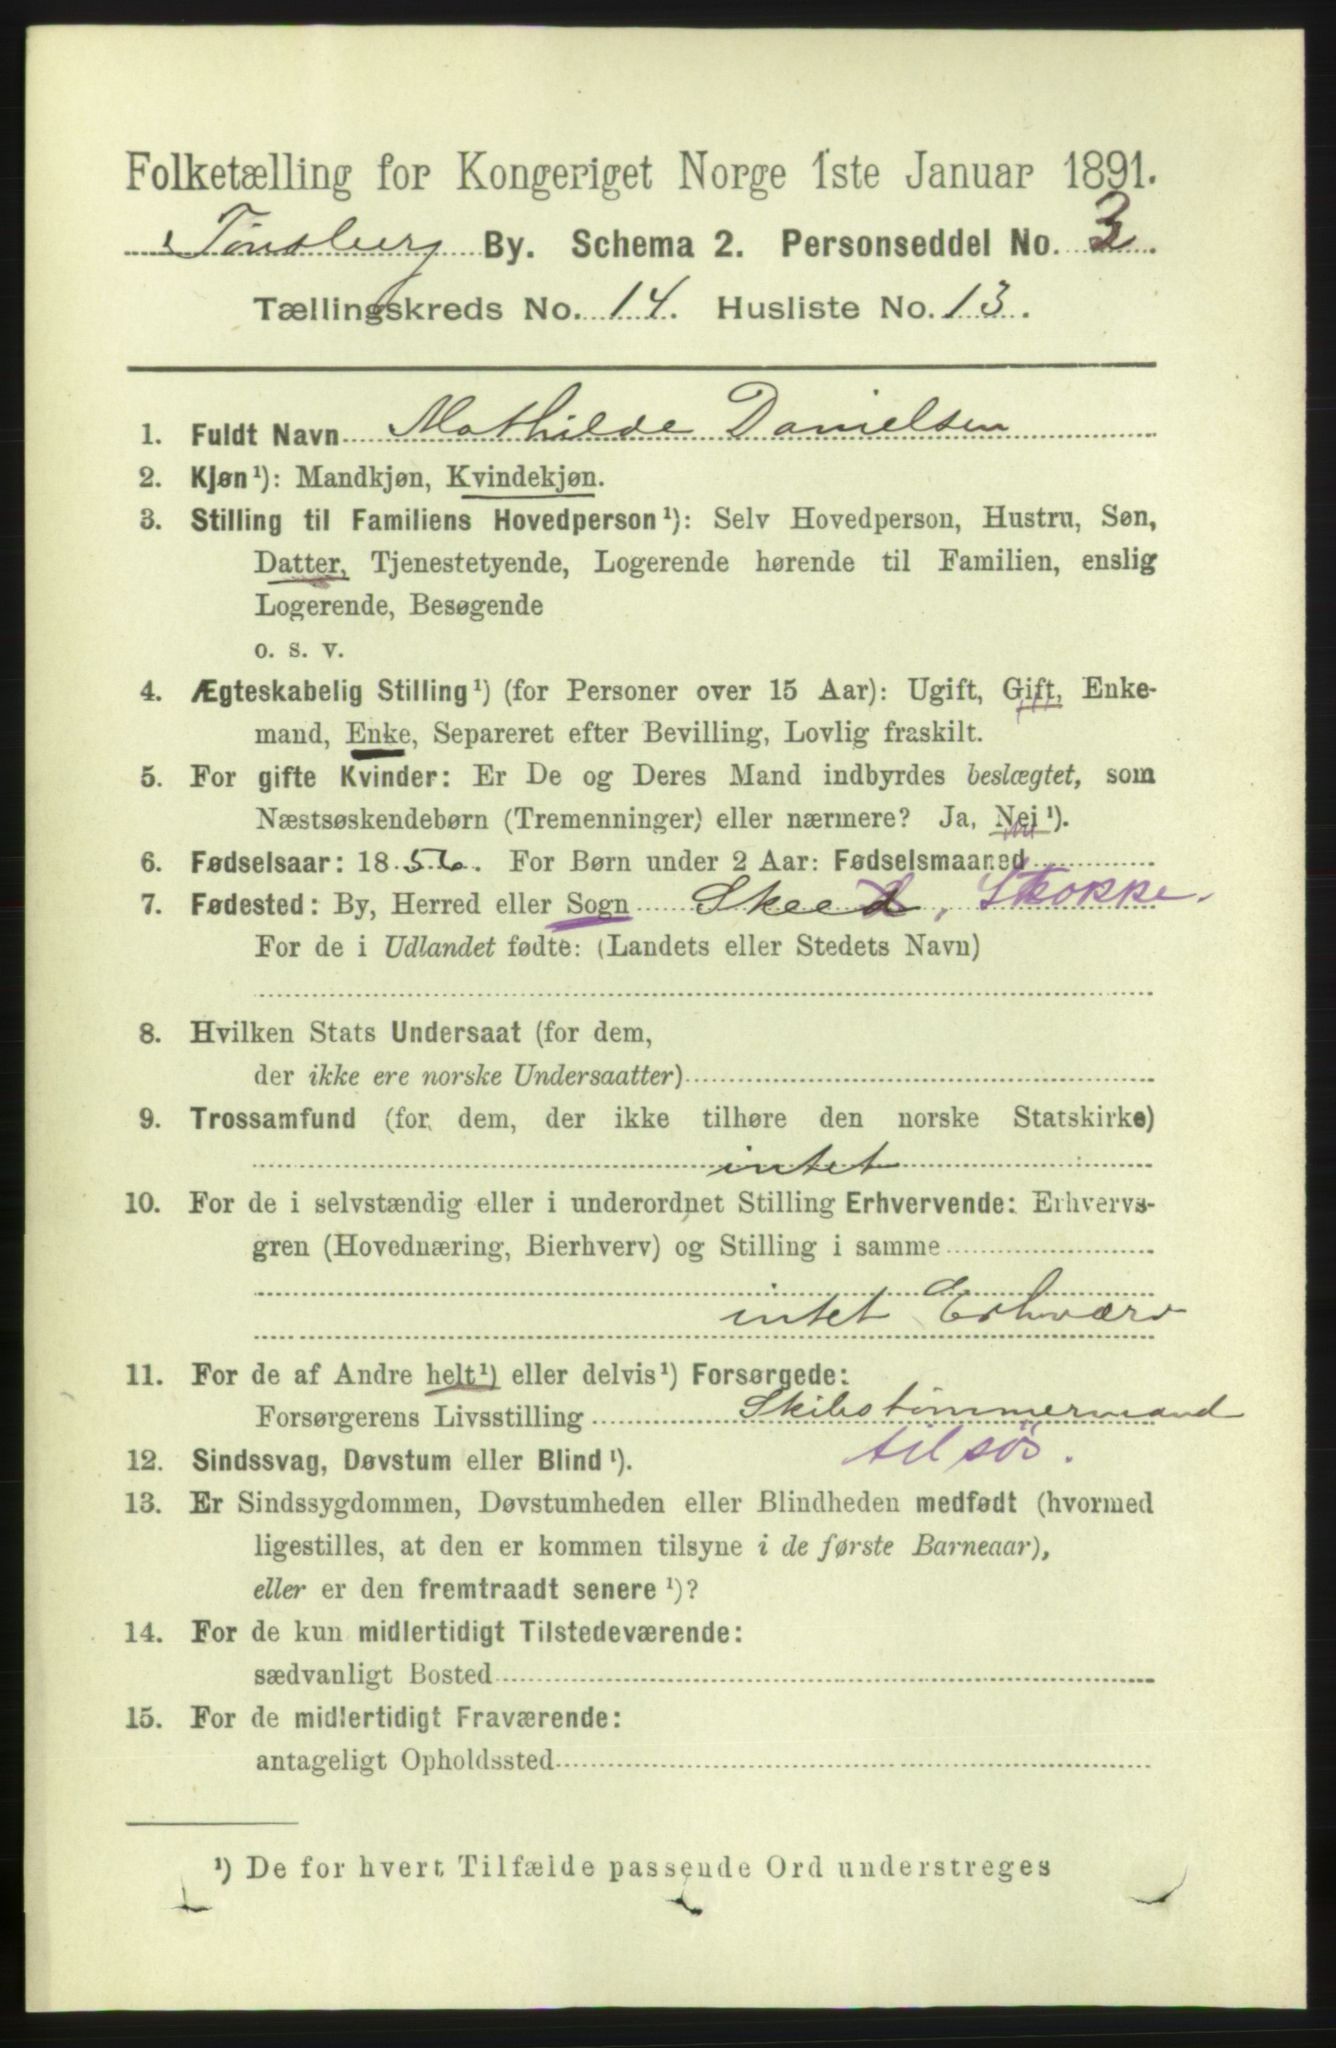 Folketælling for Kongeriget Norge 1ste Januar 1891.
Tønsberg By. Schema 2. Personseddel No. 3.
Tællingskreds No. 14. Husliste No. 13.
1. Fuldt Navn Mathilde Danielsen
2. Kjøn¹): Mandkjøn, Kvindekjøn.
3. Stilling til Familiens Hovedperson¹): Selv Hovedperson, Hustru, Søn,
Datter, Tjenestetyende, Logerende hørende til Familien, enslig
Logerende, Besøgende
o. s. v.
4. Ægteskabelig Stilling¹) (for Personer over 15 Aar): Ugift, Gift, Enke-
mand, Enke, Separeret efter Bevilling, Lovlig fraskilt.
5. For gifte Kvinder: Er De og Deres Mand indbyrdes beslægtet, som
Næstsøskendebørn (Tremenninger) eller nærmere? Ja, Nei¹).
6. Fødselsaar: 1856. For Børn under 2 Aar: Fødselsmaaned
7. Fødested: By, Herred eller Sogn Skee, Stokke.
For de i Udlandet fødte: (Landets eller Stedets Navn)
8. Hvilken Stats Undersaat (for dem,
der ikke ere norske Undersaatter)
9. Trossamfund (for dem, der ikke tilhøre den norske Statskirke)
intet
10. For de i selvstændig eller i underordnet Stilling Erhvervende: Erhvervs-
gren (Hovednæring, Bierhverv) og Stilling i samme
intet Erhværv
11. For de af Andre helt¹) eller delvis¹) Forsørgede:
Forsørgerens Livsstilling Skibstømmermand
til søs.
12. Sindssvag, Døvstum eller Blind¹).
13. Er Sindssygdommen, Døvstumheden eller Blindheden medfødt (hvormed
ligestilles, at den er kommen tilsyne i de første Barneaar),
eller er den fremtraadt senere¹)?
14. For de kun midlertidigt Tilstedeværende:
sædvanligt Bosted
15. For de midlertidigt Fraværende:
antageligt Opholdssted
¹) De for hvert Tilfælde passende Ord understreges